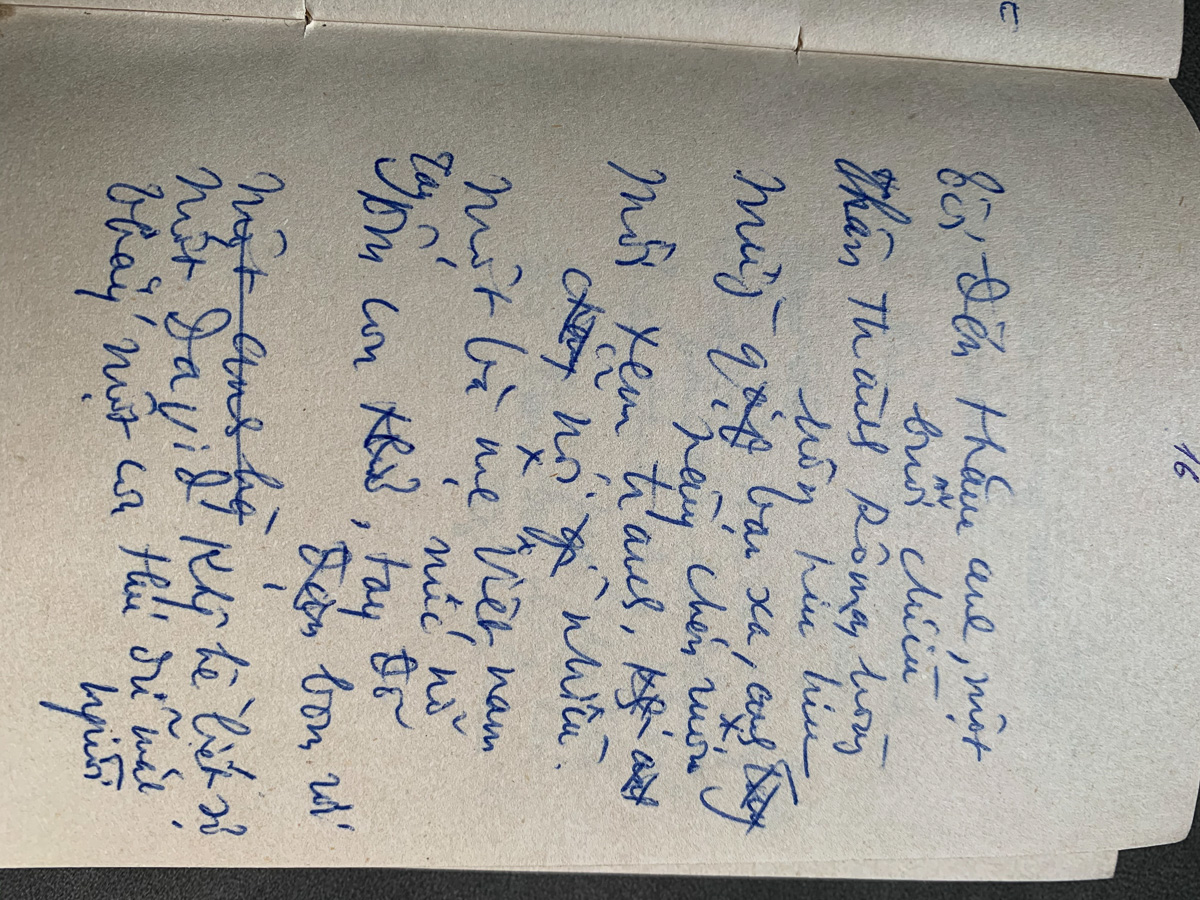 16
Tôi đến thăm anh, một
buổi chiều
Thăm Thành Rôma, hoàng
hôn hiu hiu
Mừng gặp bạn xa, anh tay
nâng chén rượu
Mời xem tranh,
nói gì nhiều.
Một bà mẹ Việt nam
mặc nổ
Tay ôm con thơ, tay đỡ
đạn bom rơi
Một anh bộ
Một David không hề biết sợ
thấy một con thú dữ mặt
người